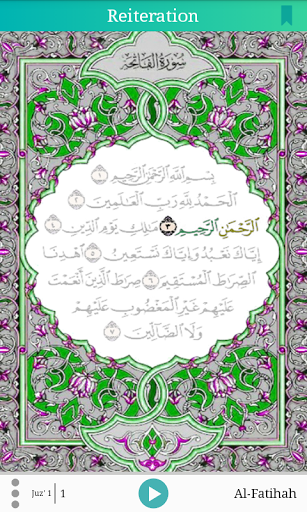 Reiteration
سورة الفاتحة
بسم الله الرحمن الرحيم ١
الحمد لله رب العالمين ٢
الرحمن الرحيم ٣ ملك يوم الدين ٤
إياك نعبد وإياك نستعين ٥ اهدنا
الصراط المستقيم ٦ صراط الذين أنعمت
عليهم غير المغضوب عليهم
ولا الضالين ٧
Juz' 1 | 1
Al-Fatihah